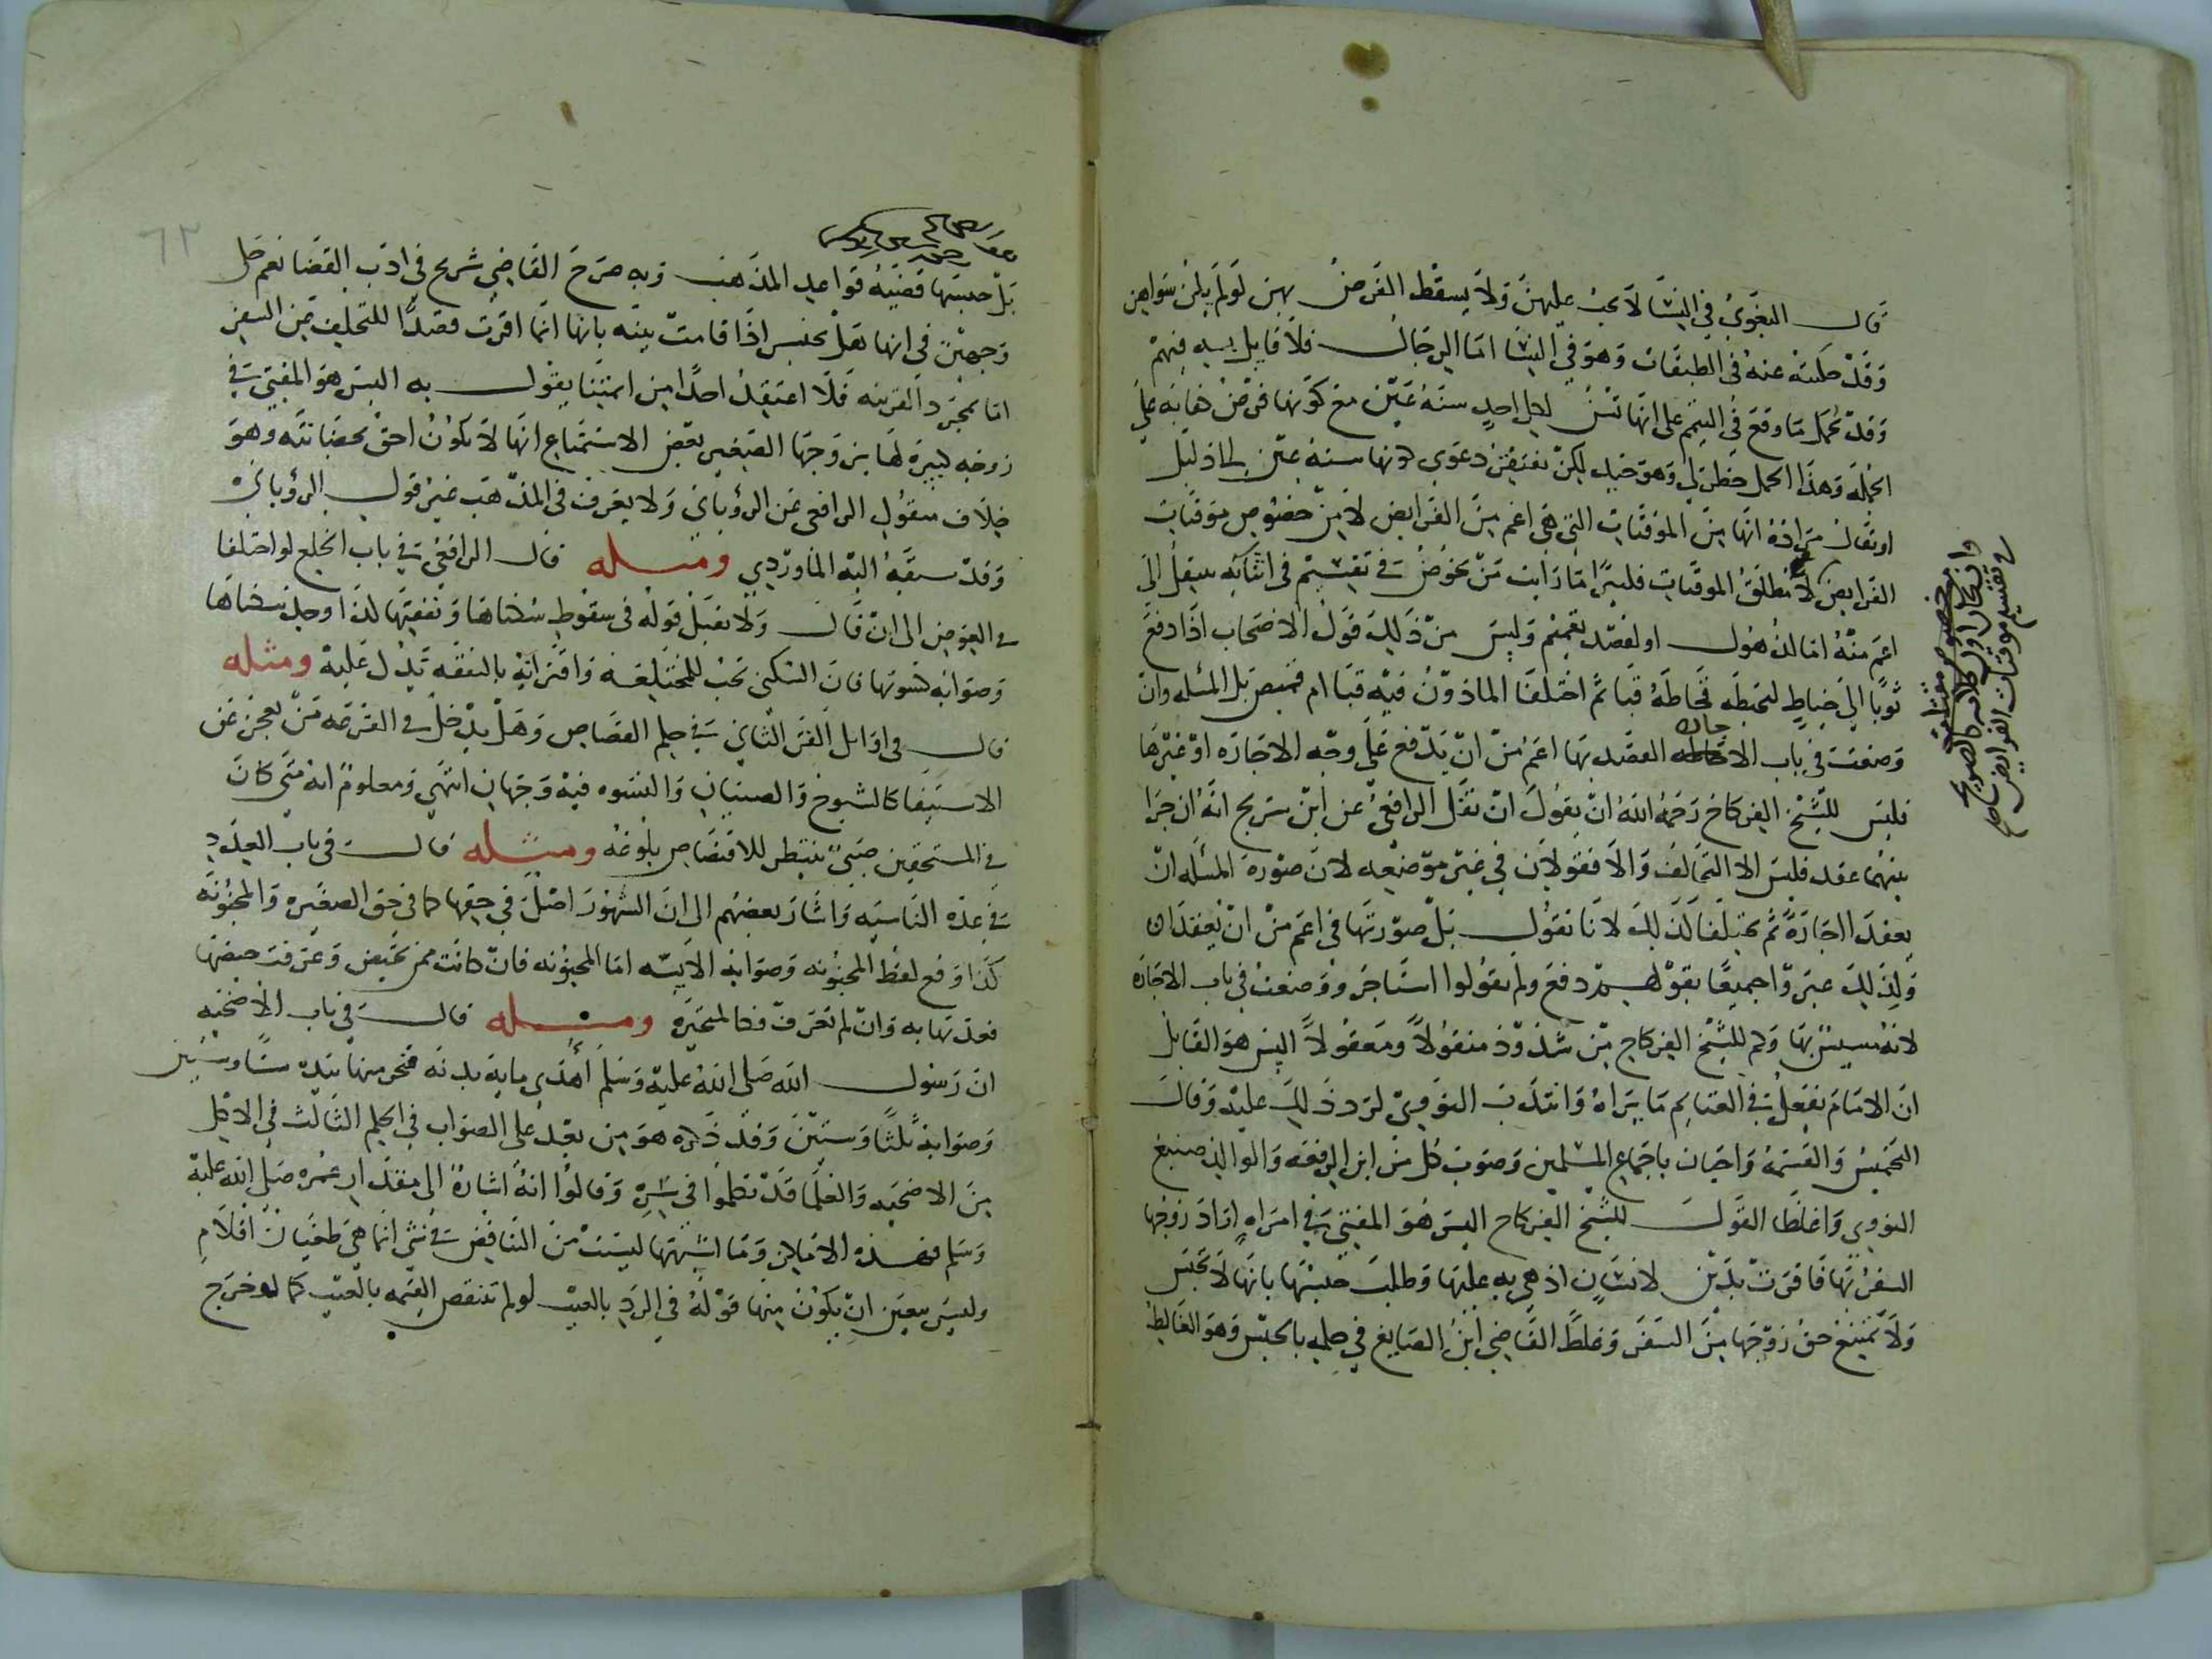 قال البغوي في النسا لا يجب عليهن ولا يسقط الفرض بهن لو لم يكن سواهن
وقد حكيته عنه في الطبقات وهو في النسا اما الرجال فلا قايل به فيهم
وقد حمل ما وقع في اليتيم على انها تسن لكل احد سنة عين مع كونها فرض كفاية على
الجملة وهذا الحمل خطر لي وهو جيد لكن يفتقر دعوى كونها سنة عين الى دليل
او يقال مراده انها من الموقتات التي هي اعم من الفرايض لا من خصوص موقتات
الفرايض لا مطلق الموقتات فكثيرا ما رايت من يخوض في تقسيم في اثنائه ينتقل الى
اعم منه اما لذهول او لقصد تعميم وليس من ذلك قول الاصحاب اذا دفع
ثوبا الى خياط ليخيطه فخاطه قبا ثم اختلفا الماذون فيه قبا ام قميص بل المسئله وان
وضعت في باب الاجاره القصد بها اعم من ان يدفع على وجه الاجاره او غيرها
فليس للشيخ الفركاح رحمه الله ان يقول ان نقل الرافعي عن ابن سريج انه ان جرا
بينهما عقد فليس الا التحالف والا فقولان في غير موضعه لان صورة المسئله ان
يعقد اجارة ثم يختلفا كذلك لانا نقول بل صورتها في اعم من ان يعقدان
ولذلك عبروا جميعا بقولهم دفع ولم يقولوا استاجر ووضعت في باب الاجاره
لانه مسيس بها وكم للشيخ الفركاح من شذوذ منقولا ومعقولا اليس هو القايل
ان الامام يفعل في الغنايم ما يراه وانتدب النووي لرد ذلك عليه وقال
التخميس والقسمة واجبان باجماع المسلمين وصوب كل من ابن الرفعه والوالد صنيع
النووي واغلظا القول للشيخ الفركاح اليس هو المفتي في امراه اراد زوجها
السفر بها فاقرت بدين لانسان اذهي به عليها وطلب حبسها بانها لا تحبس
ولا يمتنع حق زوجها من السفر وغلط القاضي ابن الصايغ في حكمه بالحبس وهو الغالط
وان كان اول كلامه كالصريح
في تقسيم موقتات الفرايض
بل حبسها قضية قواعد المذهب وبه صرح القاضي شريح في ادب القضا نعم حكى
وجهين في انها هل تحبس اذا قامت بينه بانها انما اقرت قصدا للتخلف عن السفر
اما بمجرد القرينه فلا اعتقد احدا من ايمتنا يقول به اليس هو المفتي في
زوجه كبيرة لها بزوجها الصغير بعض الاستمتاع انها لا تكون احق بحضانته وهو
خلاف منقول الرافعي عن الروياني ولا يعرف في المذهب غير قول الروياني
وقد سبقه اليه الماوردي ومثله قال الرافعي في باب الخلع لو اختلفا
في العوض الى ان قال ولا يقبل قوله في سقوط سكناها ونفقتها كذا وجد سكناها
وصوابه كسوتها فان السكنى تجب للمختلعه واقترانه بالنفقه يدل عليه ومثله
قال في اوايل الفن الثاني في حكم القصاص وهل يدخل في القرعه من يعجز عن
الاستيفا كالشيوخ والصبيان والنسوه فيه وجهان انتهى ومعلوم انه متى كان
في المستحقين صبي ينتظر للاقتصاص بلوغه ومثله قال في باب العدد
في عدة الناسيه واشار بعضهم الى ان الشهور اصل في حقها كما في حق الصغيره والمجنونه
كذا وقع لفظ المجنونه وصوابه الايسه اما المجنونه فان كانت ممن تحيض وعرفت حيضها
فعدتها به وان لم تعرف فكالمتحيره ومثله قال في باب الاضحيه
ان رسول الله صلى الله عليه وسلم اهدى مايه بدنه فنحر منها بيده ستا وستين
وصوابه ثلثا وستين وقد ذكره هو من بعد على الصواب في الحكم الثالث في الاكل
من الاضحيه والعلما قد تكلموا في سره وقالوا انه اشارة الى مقدار عمره صلى الله عليه
وسلم فهذه الاماكن وما اشبهها ليست من التناقض في شي انما هي طغيان اقلام
وليس ببعيد ان يكون منها قوله في الرد بالعيب لو لم تنقص القيمه بالعيب كما لو خرج
٦٢